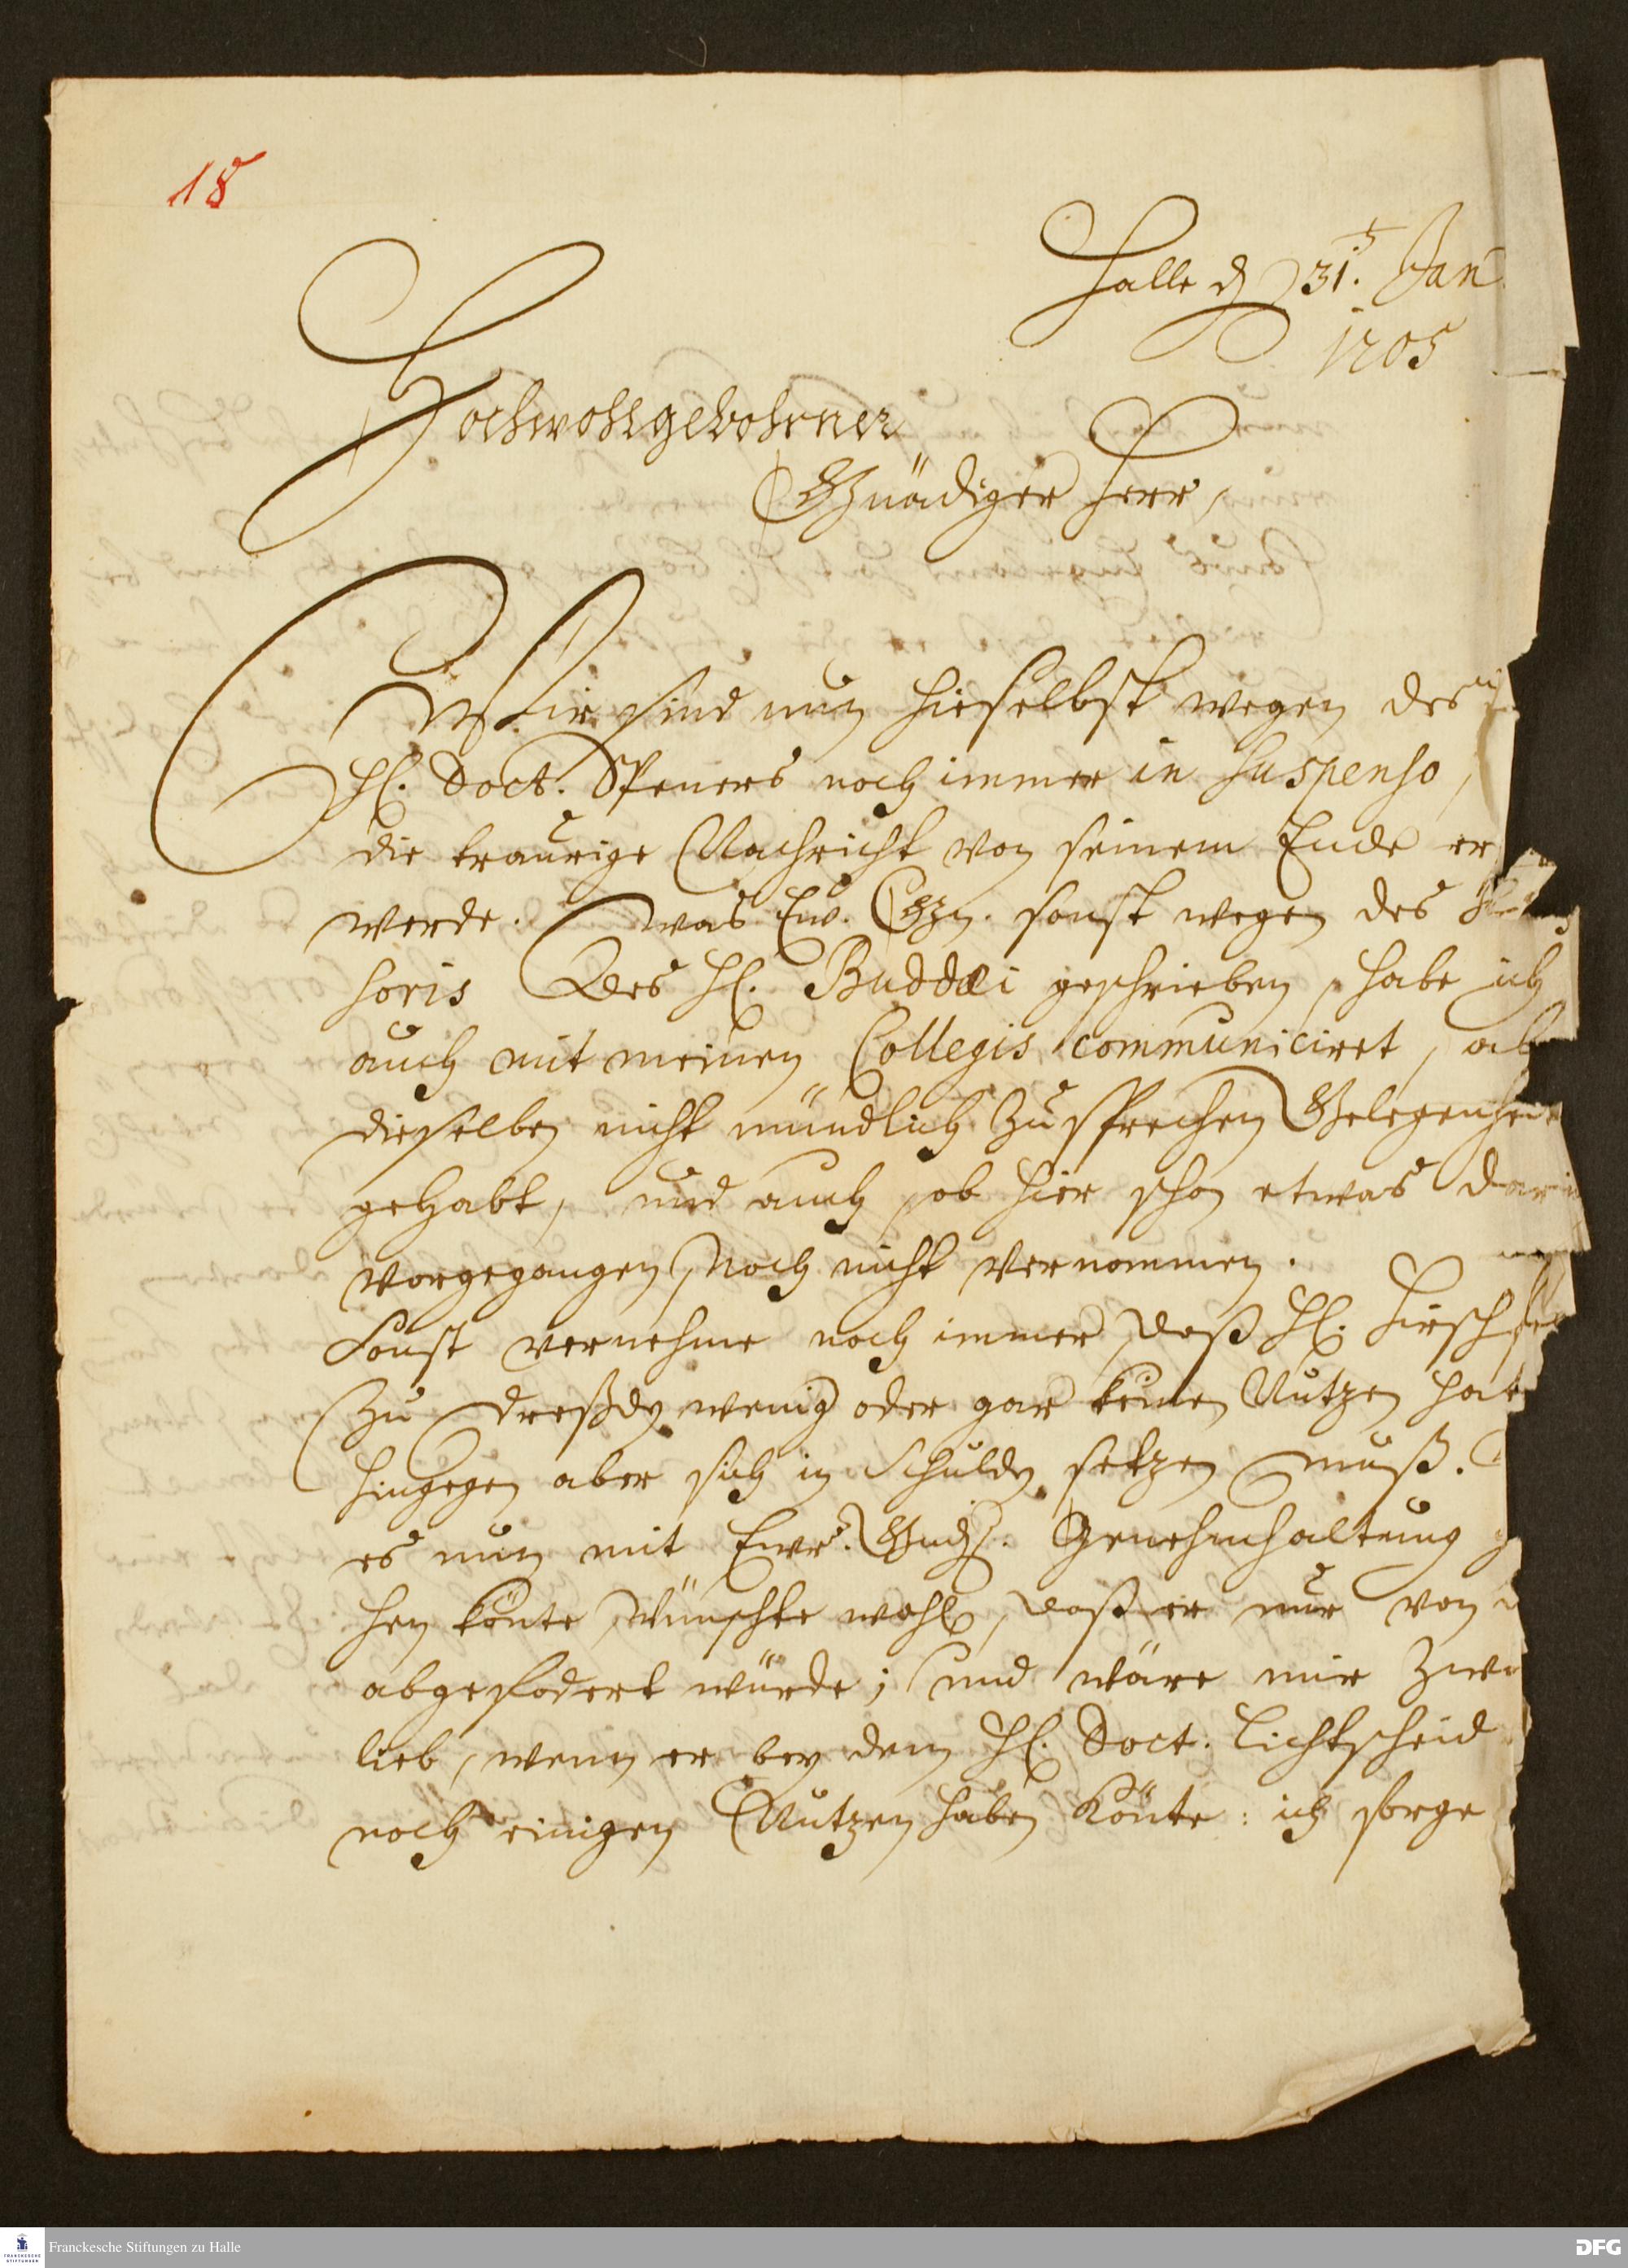 18
Halle d 31. Jan
1705
Hochwohlgebohrner
Gnädiger Herr,
Wir sind nun hieselbst wegen des
H. Doct. Speners noch immer in suspenso,
die traurige Nachricht von seinem Ende er
werde. was Ew. Gn. sonst wegen des
soris des H. Buddæi geschrieben, habe ich
auch mit meinen Collegis communiciret, ab
dieselben nicht mündlich zu sprechen Gelegenhei
gehabt, und auch, ob hier schon etwas dari
vorgegangen, noch nicht vernommen.
Sonst vernehme noch immer, daß H. Hirsch
zu Dreßdn wenig oder gar keinen Nutzen hab
hingegen aber sich in Schuldn setzen muß.
es nun mit Ewr. Gnd. Genehmhaltung
hen könte, wünschte wohl, daß er nur von
abgefodert würde; und wäre mir zwa
lieb, wenn er bey dem H. Doct. Lichtscheid
noch einigen Nutzen haben könte: ich sorge
Franckesche Stiftungen zu Halle
DFG